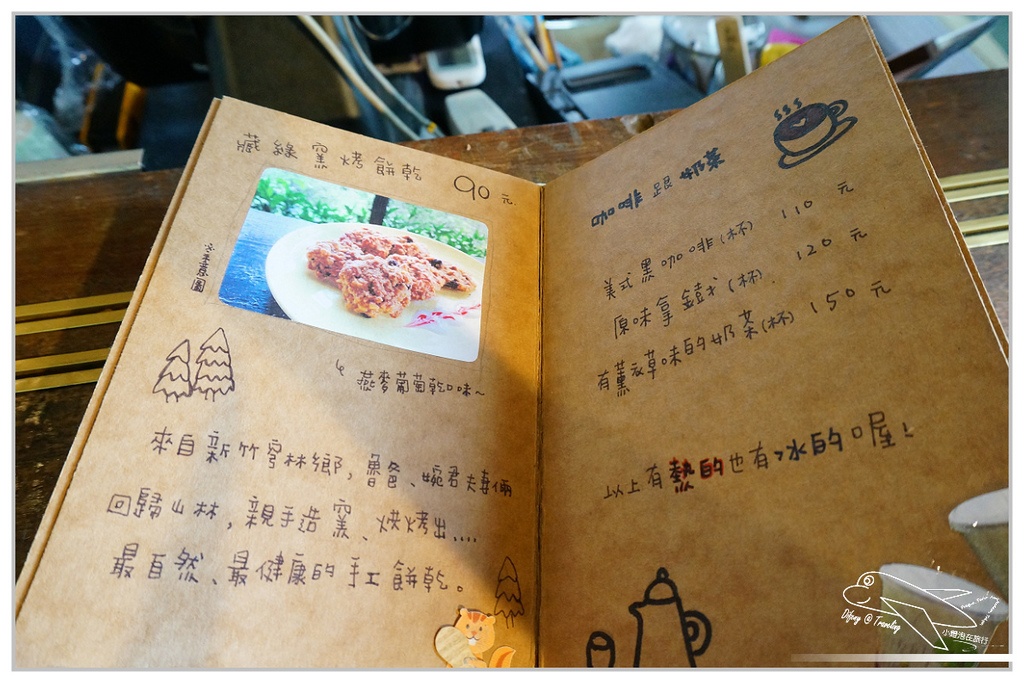 藏綠窯烤餅乾 90元.
↳ 燕麥葡萄乾口味~
來自新竹芎林鄉,魯爸、婉君夫妻倆
回歸山林,親手造窯、烘烤出....
最自然、最健康的手工餅乾。
咖啡跟奶茶
美式黑咖啡(杯) 110 元
原味拿鐵(杯) 120 元
有薰衣草味的奶茶(杯) 150 元
以上有熱的也有冰的喔!
小燈泡在旅行